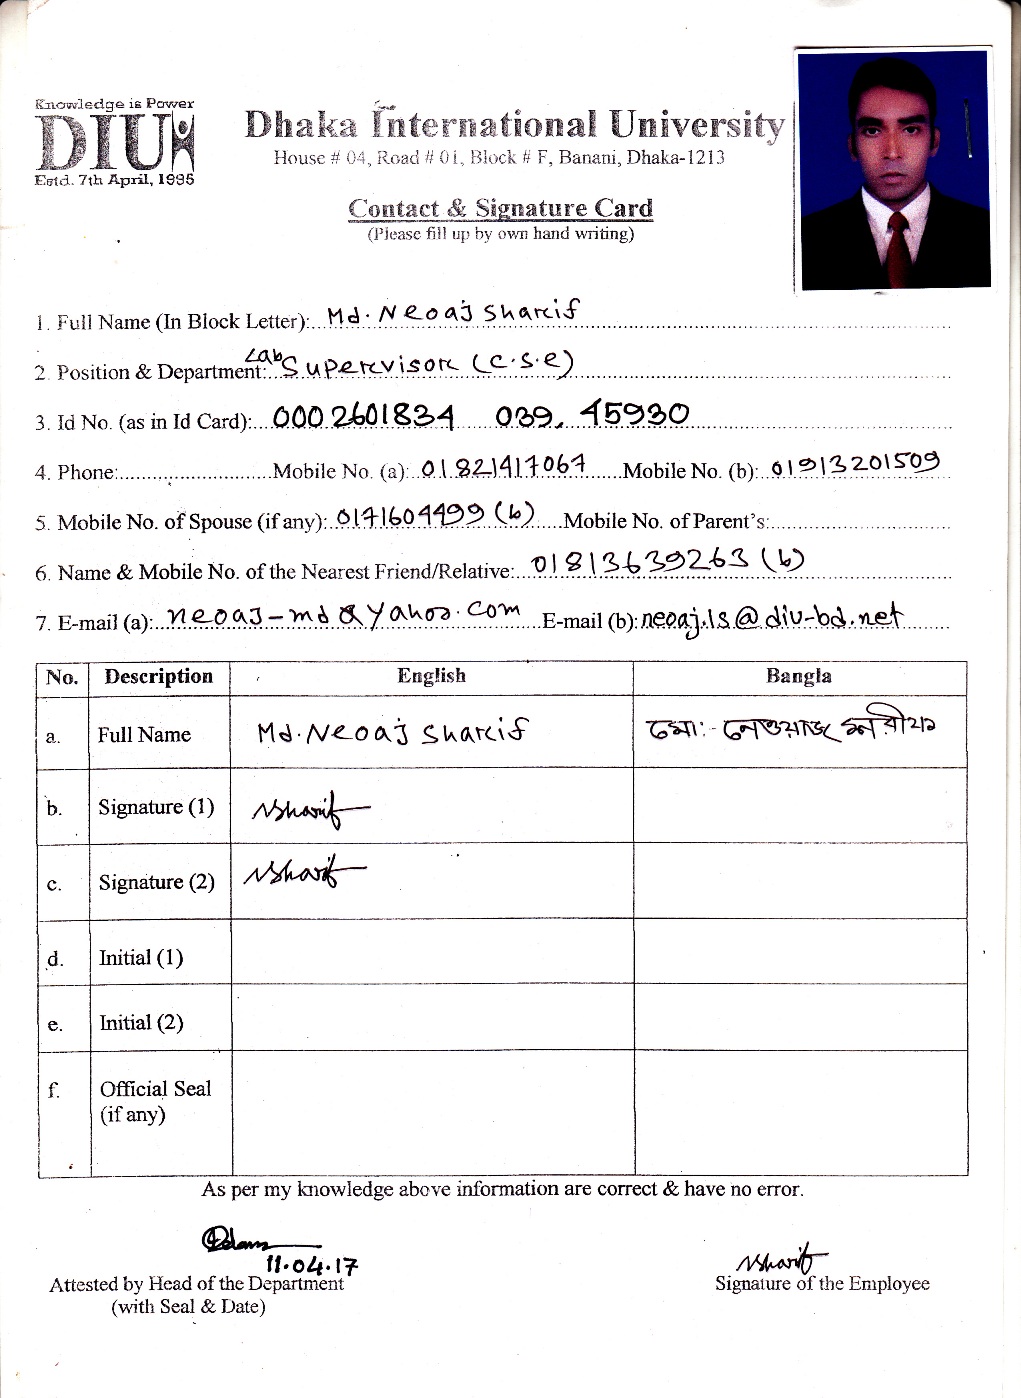 Knowledge is Power
DIU
Estd. 7th April, 1995
Dhaka International University
House # 04, Road # 01, Block # F, Banani, Dhaka-1213
Contact & Signature Card
(Please fill up by own hand writing)
1. Full Name (In Block Letter): Md. Neoaj Sharif
2. Position & Department: Lab Supervisor (C.S.E)
3. Id No. (as in Id Card): 0002601834 039, 45930
4. Phone: Mobile No. (a): 01821417067 Mobile No. (b): 01913201509
5. Mobile No. of Spouse (if any): 0171604499 (b) Mobile No. of Parent's:
6. Name & Mobile No. of the Nearest Friend/Relative: 01813639263 (b)
7. E-mail (a): neoaj-md@yahoo.com E-mail (b): neoaj.ls@diu-bd.net
No. Description English Bangla
a. Full Name Md. Neoaj Sharif মোঃ- নেওয়াজ শরীফ
b. Signature (1) NSharif
c. Signature (2) NSharif
d. Initial (1)
e. Initial (2)
f. Official Seal
(if any)
As per my knowledge above information are correct & have no error.
11.04.17
NSharif
Attested by Head of the Department Signature of the Employee
(with Seal & Date)